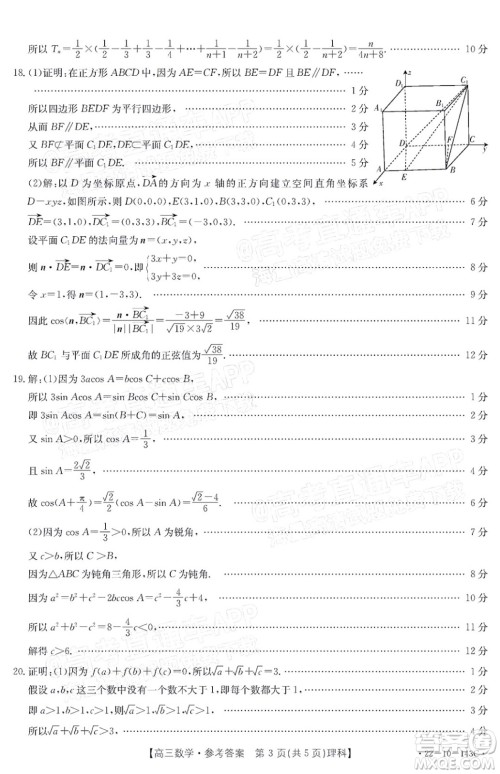 所以 Tₙ=1/2×(1/2-1/3+1/3-1/4+…+1/(n+1)-1/(n+2))=1/2×(1/2-1/(n+2))=n/(4n+8). 10分
18.(1)证明:在正方形 ABCD 中,因为 AE=CF,所以 BF=DE 且 BF∥DE,
1分
所以四边形 BEDF 为平行四边形, 2分
从而 BF∥DE, 3分
又 BF⊄平面 C₁DE,DE⊂平面 C₁DE, 4分
所以 BF∥平面 C₁DE. 5分
(2)解:以 D 为坐标原点,DA的方向为 x 轴的正方向建立空间直角坐标系
D-xyz,如图所示,则 D(0,0,0),E(3,1,0),B(3,3,0),C₁(0,3,3), 6分
DE=(3,1,0),DC₁=(0,3,3),BC₁=(-3,0,3). 7分
设平面 C₁DE 的法向量为 n=(x,y,z),
则 n·DE=n·DC₁=0,即{3x+y=0, 3y+3z=0, 8分
令 x=1,得 n=(1,-3,3). 9分
因此 cos⟨n,BC₁⟩=n·BC₁/|n||BC₁|=(-3+9)/(√19×3√2)=√38/19, 11分
故 BC₁ 与平面 C₁DE 所成角的正弦值为√38/19. 12分
z
D₁
C₁
A₁
B₁
D
C
y
F
A
E
B
x
19.解:(1)因为 3acos A=bcos C+ccos B,
所以 3sin Acos A=sin Bcos C+sin Ccos B, 1分
即 3sin Acos A=sin(B+C)=sin A. 2分
又 sin A>0,所以 cos A=1/3, 3分
且 sin A=2√2/3. 4分
故 cos(A+π/4)=√2/2(cos A-sin A)=(√2-4)/6. 6分
(2)因为 cos A=1/3>0,所以 A 为锐角, 7分
又 c>b,所以 C>B. 8分
因为△ABC 为钝角三角形,所以 C 为钝角. 9分
因为 a²=b²+c²-2bccos A=c²-4/3c+4, 10分
所以 a²+b²-c²=8-4/3c<0, 11分
解得 c>6. 12分
20.证明:(1)因为 f(a)+f(b)+f(c)=0,所以√a+√b+√c=3. 1分
假设 a,b,c 这三个数中没有一个大于 1 或都大于 1, 2分
即 a>1,b>1,c>1,所以√a>1,√b>1,√c>1, 3分
所以√a+√b+√c>3, 4分
【高三数学·参考答案 第 3 页(共 5 页)理科】